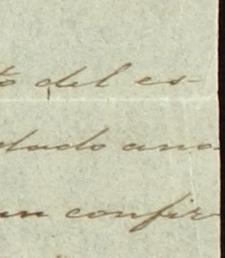 to del es-
dado ano
un confir-